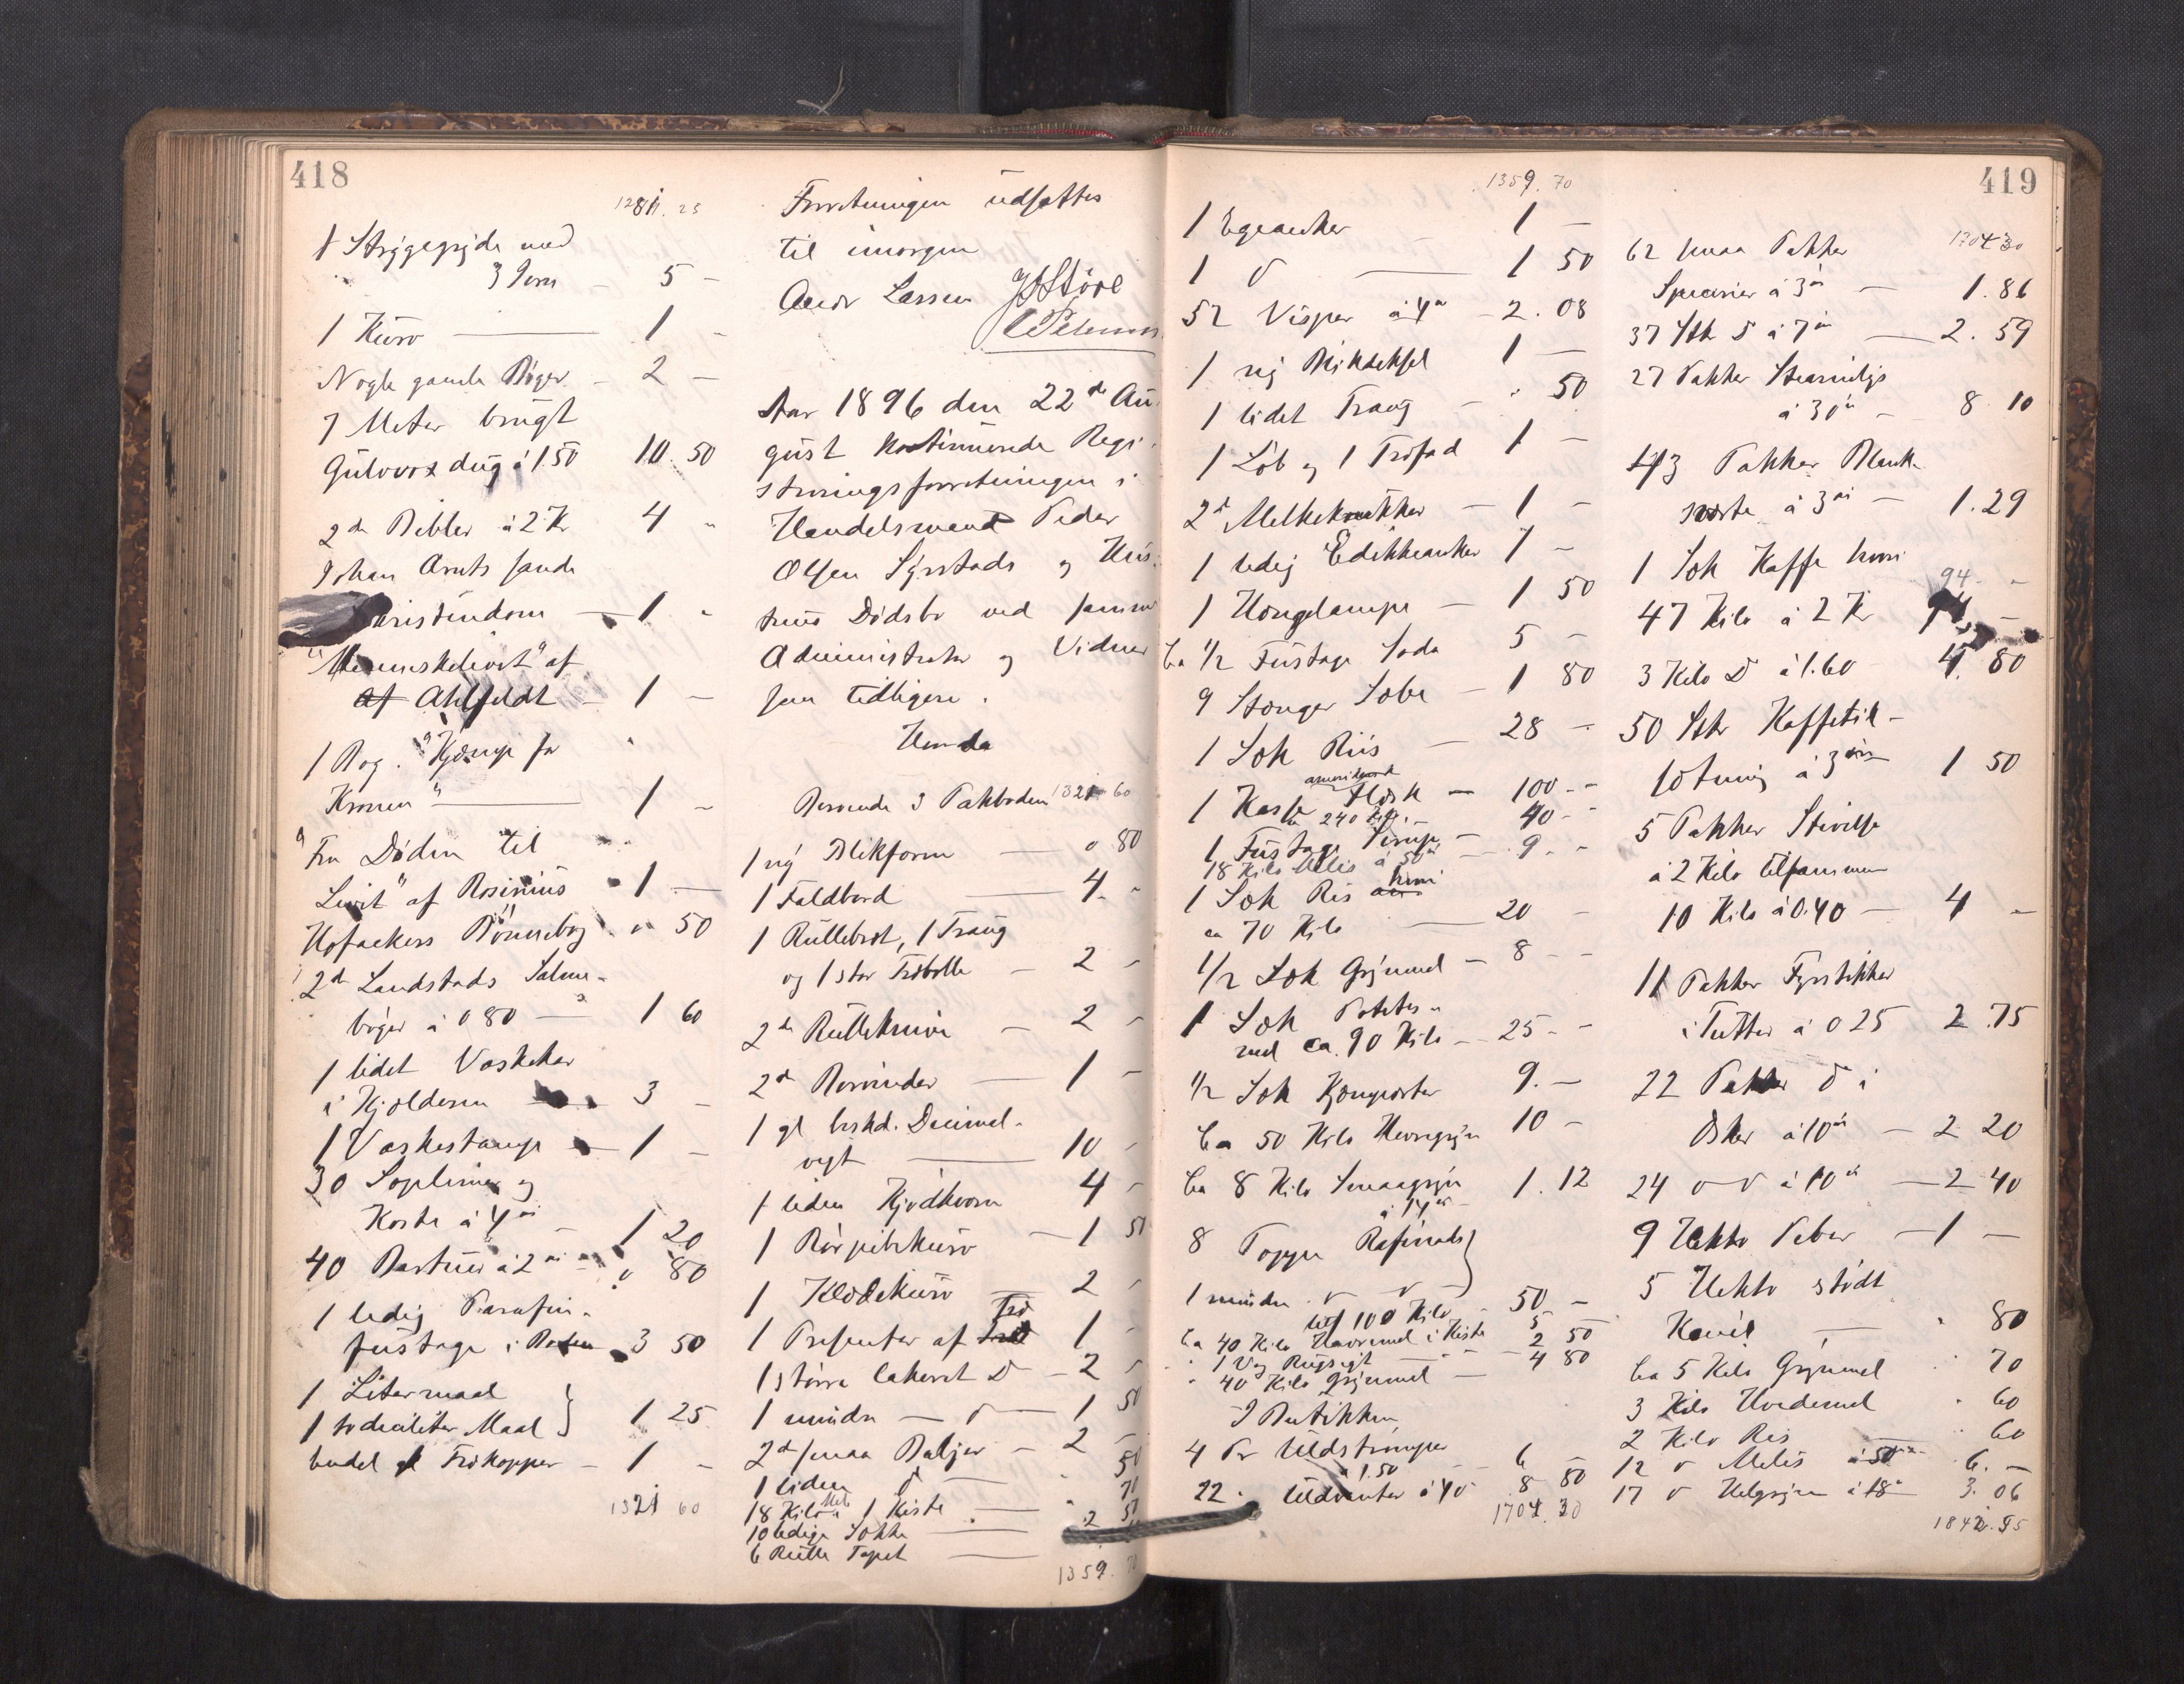 418
1281. 25
1 Strygegryde med
3 Jern - 5 -
1 Kurv - 1 -
Nogle gamle Bøger - 2 -
7 Meter brugt
Gulvvoxdug à 1.50 10. 50
2de Bibler à 2 Kr 4 -
Johan Arnts sande
Kristendom - 1 -
"Menneskelivet" af
af Ahlfeldt - 1 -
1 Bog. "Kjæmp for
Kronen" - 1 -
"Fra Døden til
Livet" af Rosinius - 1 -
Hofackers Bønnebog - " 50
2de Landstads Salme-
bøger à 0 80 - 1 60
1 lidet Vaskekar
i Kjelderen - 3 -
1 Vaskestamp - 1 -
30 Soplimer og
Koste à 4 ør - 1 20
40 à 2 ør - " 80
1 ledig Parafin-
fustage i Boden 3 50
1 Litermaal
1 to deciliter Maal } 1 25
endel gl Trækopper - 1 -
1321 60
Forretningen udsattes
til imorgen
Andr Larsen
Aar 1896 den 22de Au-
gust kontinuerede Regi-
streringsforretningen i
Handelsmand Peder
Olsen Syrstads og Hus-
trus Dødsbo ved samme
Administrator og Vidner
som tidligere.
Boende I Pakboden 1321 60
1 ny Blikform - 0 80
1 Faldbord - 4 -
1 Rullebret, 1 Traug
og 1 stor Træbolle - 2 -
2de Rulleknive - 2 -
2de - 1 -
1 gl beskd. Decimal-
vegt - 10 -
1 liden Kjødkvern 4 -
1 Rørpibekurv - 1 50
1 Klædekurv - 2 -
1 Presenter af Træ 1 -
1 større lakeret Do - 2 -
1 mindre - do - 1 50
2de smaa Baljer - 2 -
1 liden do - 50
18 Kilo Mel i 1 Kiste - " 70
10 ledige Sække - 2 50
6 Rulle Tapet
1359. 70
419
1359. 70
1 Egeanker 1 -
1 do - 1 50
52 Visper à 4 ør - 2. 08
1 ny 1 -
1 lidet Traug - " 50
1 Løb og 1 Træfad 1 -
2de Melkekrukker - 1 -
1 ledig Edikkeanker 1 -
1 Hængelampe - 1 50
Ca 1/2 Fustage Soda 5 -
9 Stænger Sæbe - 1 80
1 Sæk Riis - 28 -
1 Kasse amerikansk Flæsk - 100 - -
ca 240 Kilo - 40 -
1 Fustage Sirup -
18 Kilo Melis à 50 ør - 9 - -
1 Sæk Ris
ca 70 Kilo - 20 -
1/2 Sæk Grynmel - 8 - -
1 Sæk Potetes-
mel ca. 90 Kilo - 25 - -
1/2 Sæk 9. -
Ca 50 Kilo Havregryn 10 -
Ca 8 Kilo Smaagryn 1. 12
à 14 ør
8 Toppe Rafinade }
1 mindre do do
100 Kilo - 50 -
Ca 40 Kilo Havremel i Kiste 5 -
1 Vog Rugsigt - 2 50
40 Kilo Grynmel - 4 80
I Butikken
4 Par Uldstrømper
à 1.50 - 6 -
22 " Uldvanter à 40 8 80
1704. 30
1704 30
62 smaa Pakker
Specerier à 3 ør - 1. 86
37 Stk do à 7 ør - 2. 59
27 Pakker Stearinlys
à 30 ør - 8 10
43 Pakker Blank-
sverte à 3 ør - 1. 29
1 Sæk Kaffe
94 -
47 Kilo à 2 Kr
3 Kilo Do à 1.60 4. 80
50 Stk Kaffetil-
sætning à 3 ør 1 50
5 Pakker Stivelse
à 2 Kilo tilsammen
10 Kilo à 0.40 - 4 -
11 Pakker Fyrstikker
i Tutter à 0 25 2. 75
22 Pakker do i
Æsker à 10 ør - 2 20
24 do do à 10 ør - 2 40
9 Hekto Peber - 1 -
5 Hekto stødt
Kanél - " 80
Ca 5 Kilo Grynmel " 70
3 Kilo Hvedemel " 60
2 Kilo Ris - 60
12 do Melis à 50 ør 6. -
17 do Helgryn à 18 ør 3. 06
1842. 55